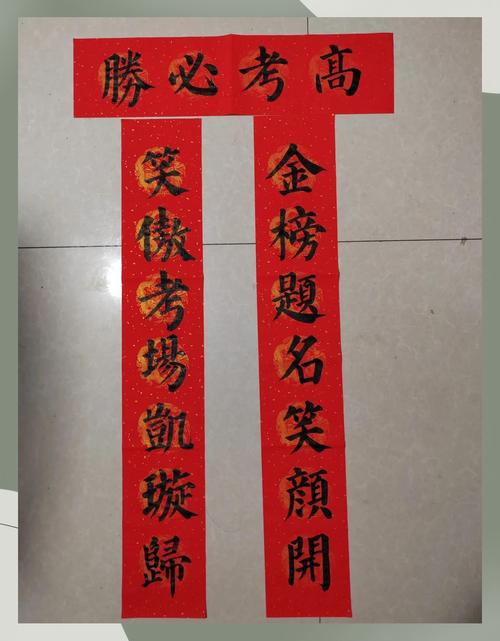 高考必勝
金榜題名笑顔開
笑傲考場凱璇歸